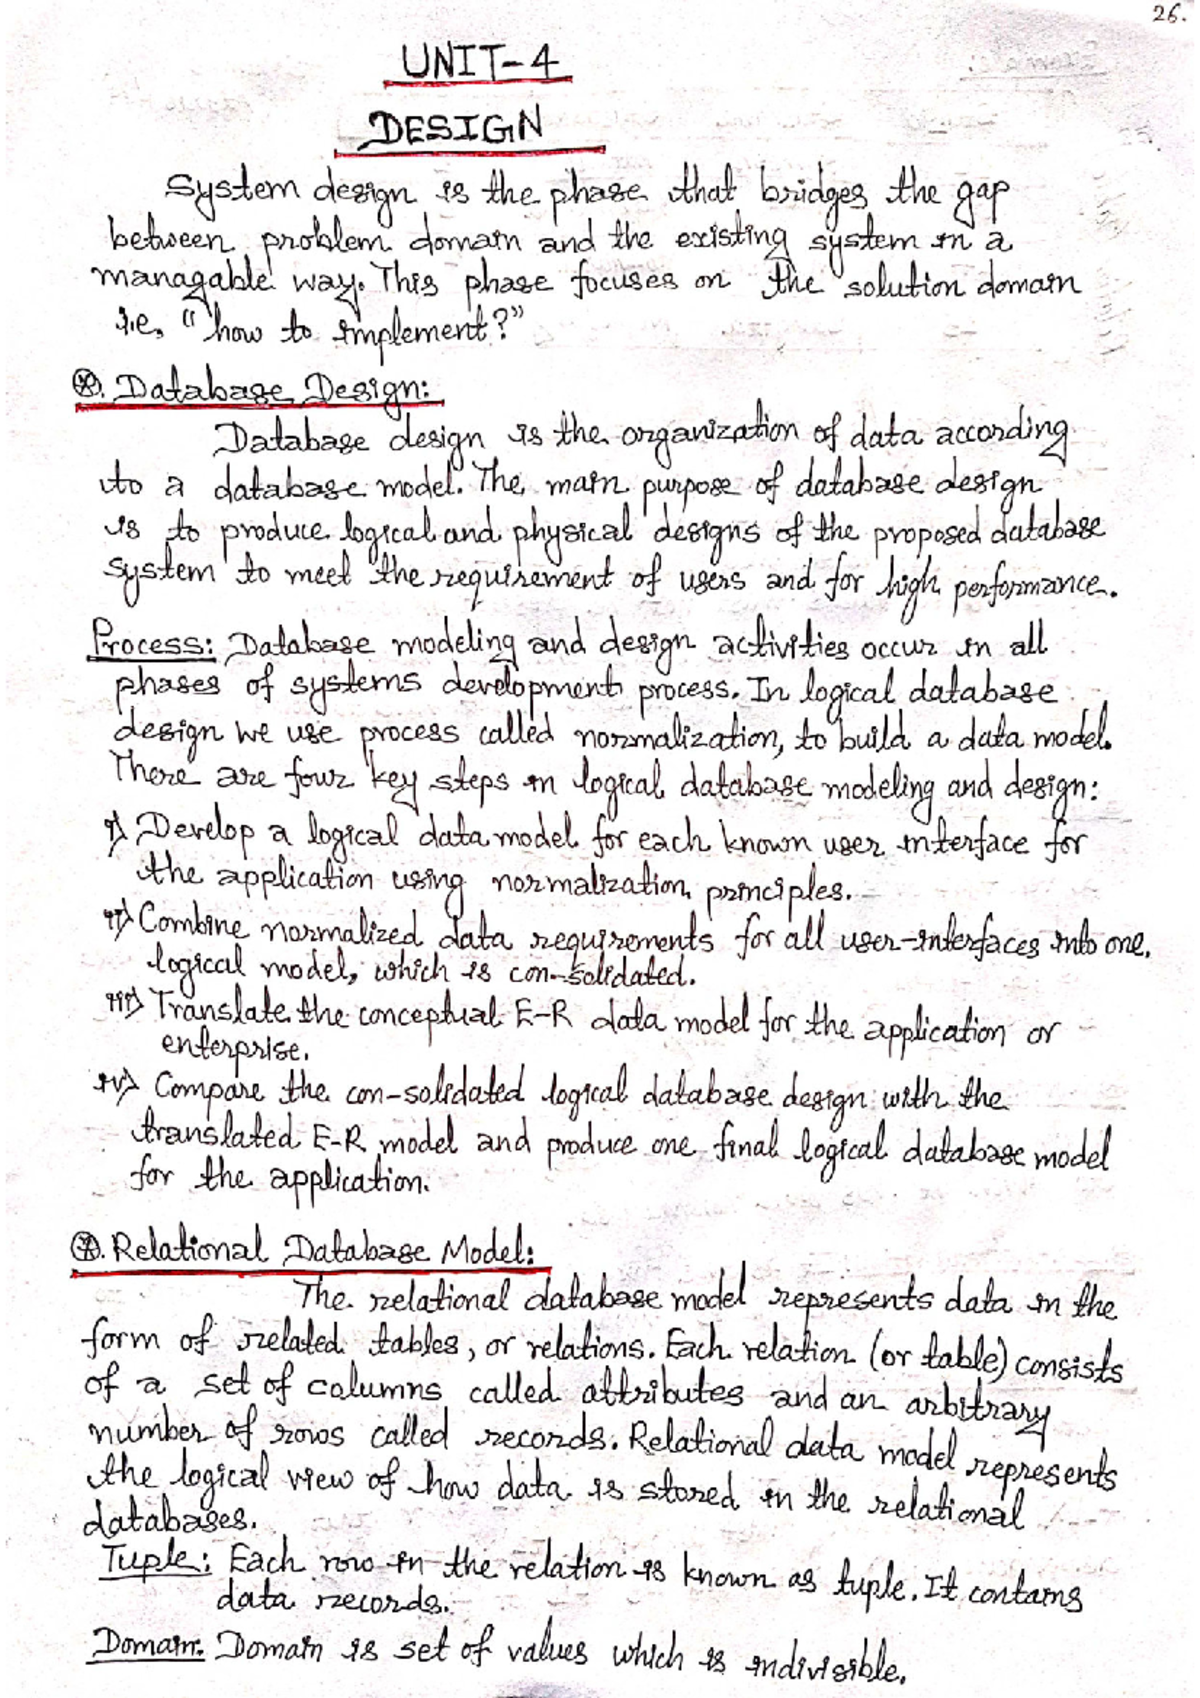 26.
UNIT-4
DESIGN
System design is the phase that bridges the gap
between problem domain and the existing system in a
managable way. This phase focuses on the solution domain
i.e, "how to implement?"
⊛. Database Design:
Database design is the organization of data according
to a database model. The main purpose of database design
is to produce logical and physical designs of the proposed database
system to meet the requirement of users and for high performance.
Process: Database modeling and design activities occur in all
phases of systems development process. In logical database
design we use process called normalization, to build a data model.
There are four key steps in logical database modeling and design:
i) Develop a logical data model for each known user interface for
the application using normalization principles.
ii) Combine normalized data requirements for all user-interfaces into one
logical model, which is con-solidated.
iii) Translate the conceptual E-R data model for the application or
enterprise.
iv) Compare the con-solidated logical database design with the
translated E-R model and produce one final logical database model
for the application.
⊛. Relational Database Model:
The relational database model represents data in the
form of related tables, or relations. Each relation (or table) consists
of a set of columns called attributes and an arbitrary
number of rows called records. Relational data model represents
the logical view of how data is stored in the relational
databases.
Tuple: Each row in the relation is known as tuple. It contains
data records.
Domain: Domain is set of values which is indivisible.